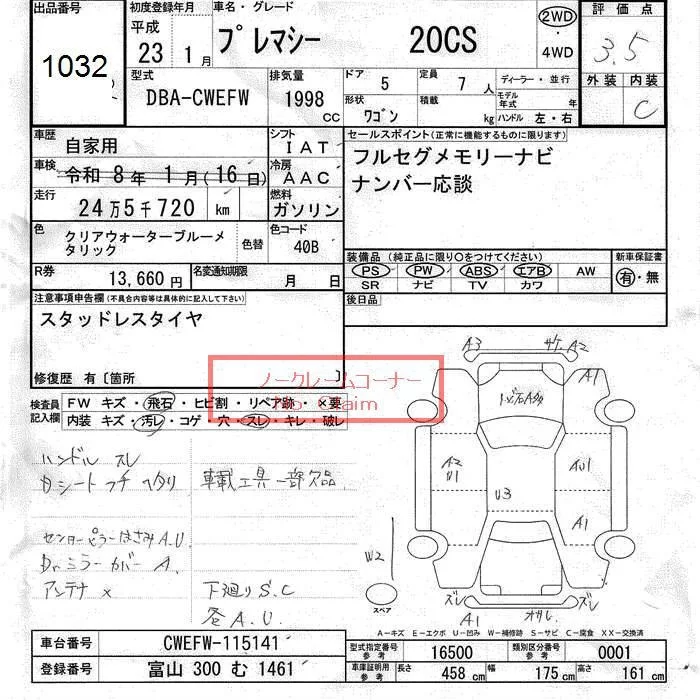 出品番号
1032
初度登録年月
平成
23 1月
車名・グレード
プレマシー 20CS
2WD
・
4WD
評価点
3.5
外装 内装
C
型式
DBA-CWEFW
排気量
1998
CC
ドア 5
定員 7人
形状 ワゴン
積載 kg
ディーラー・並行
モデル年式 年
ハンドル 左・右
車歴 自家用
シフト IAT
車検 令和 8年 1月(16日)
冷房 AAC
走行 24万5千720 km
燃料 ガソリン
色 クリアウォーターブルーメタリック
色替
色コード 40B
R券 13,660円
名変通知期限 月 日
セールスポイント(正常に機能するものに限ります)
フルセグメモリーナビ
ナンバー応談
装備品(純正品に限り○をつけてください)
PS PW ABS エアB AW
SR ナビ TV カワ
新車保証書
有・無
後日品
注意事項申告欄(不具合内容等は具体的に記入して下さい)
スタッドレスタイヤ
修復歴 有〔箇所 〕
ノークレームコーナー
No Claim
検査員記入欄
FW キズ・飛石・ヒビ割・リペア跡・×要
内装 キズ・汚レ・コゲ・穴・スレ・キレ・破レ
ハンドル スレ
シート フチ ヘタリ
車載工具一部欠品
センターピラーはさみA.U
Dr.ミラーカバーA.
アンテナ ×
下廻りS.C
各A.U.
A3
A2
A1
A2
U1
U3
AU1
A1
W2
スペア
ズレ
A1
ズレ
A-キズ E-エクボ U-凹み W-補修跡 S-サビ C-腐食 XX-交換済
車台番号 CWEFW-115141
登録番号 富山 300 む 1461
型式指定番号 参考 16500
類別区分番号 参考 0001
車庫証明用 参考 長さ 458cm 幅 175cm 高さ 161cm